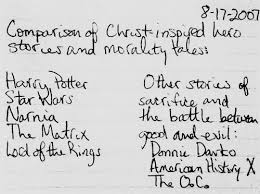 8-17-2007
Comparison of Christ-inspired hero
stories and morality tales:
Harry Potter
Star Wars
Narnia
The Matrix
Lord of the Rings
Other stories of
sacrifice and
the battle between
good and evil:
Donnie Darko
American History X
The O.C.